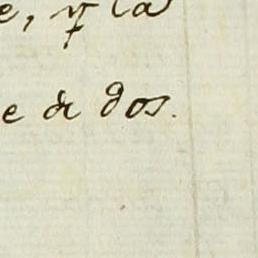 e, y la
e de dos.